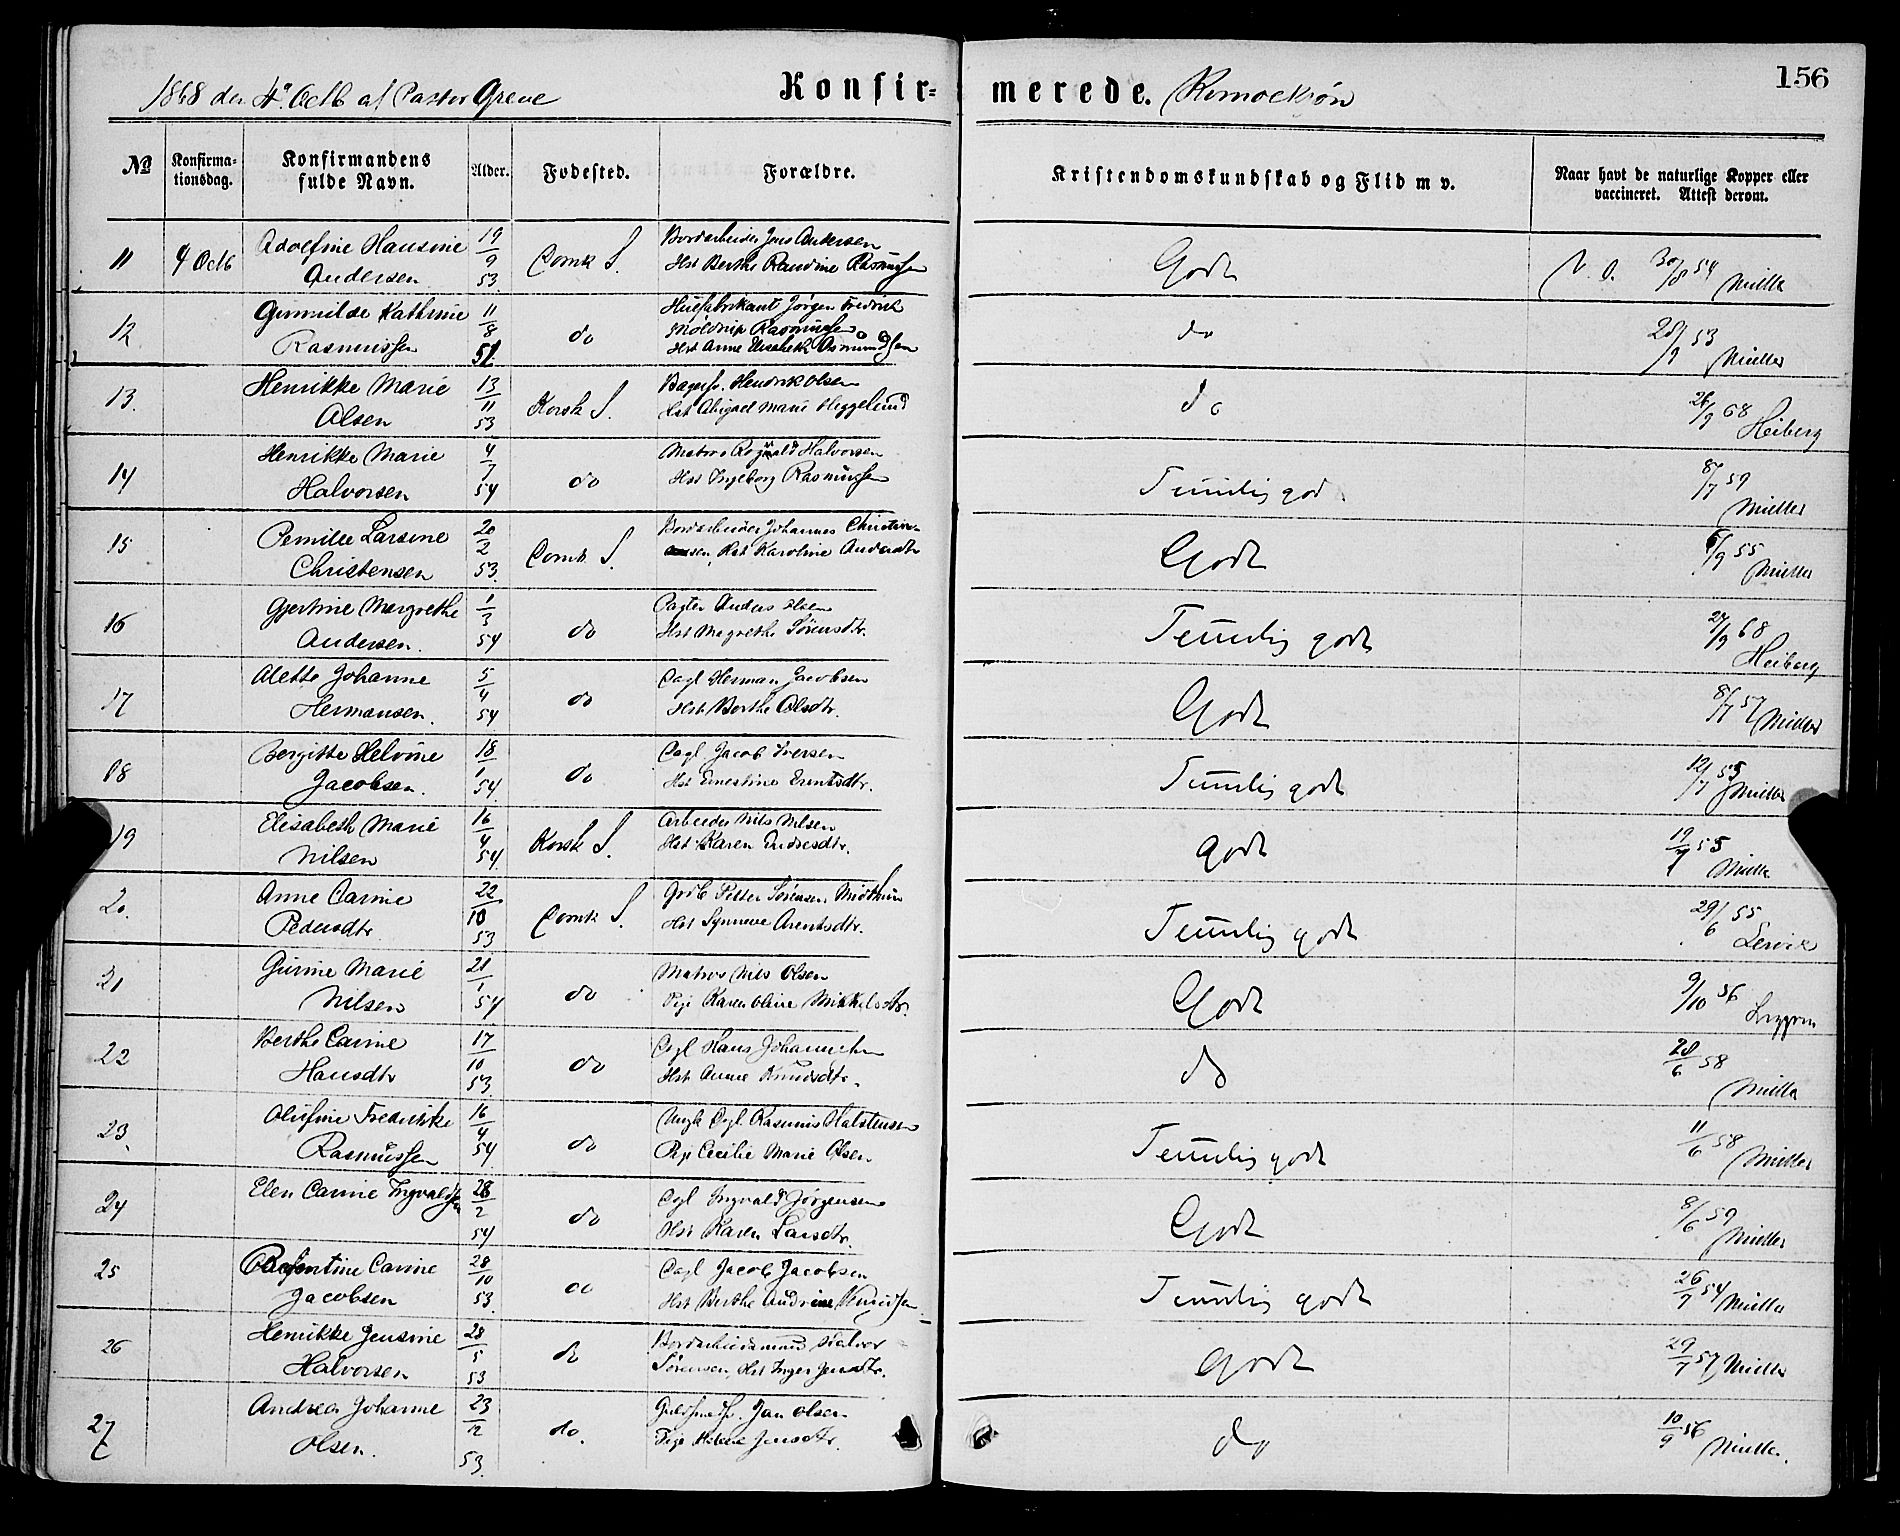 1868 den 4de Octb af Pastor Greve
Konfir=
merede.
156
№
Konfirma-
tionsdag.
Konfirmandens
fulde Navn.
Alder.
Fødested.
Forældre.
Kristendomskundskab og Flid m v.
Naar havt de naturlige Kopper eller
vaccineret. Attest derom.
11 4 Octb Adolfine Hansine Andersen 19/9 53 Domk S. Bordarbeider Jens Andersen
Hst Berthe Randine Rasmussen Godt 30/8 54 Müller
12 Gunnilde Kathrine Rasmussen 11/8 51 do Jørgen Fredrik
Rasmussen
Hst Anne Elisabeth Asmundsen do 28/9 53 Müller
13. Henrikke Marie Olsen 13/11 53 Korsk S. Hendrik Olsen
Hst Abigael Marie Heggelund do 26/9 68 Heiberg
14 Henrikke Marie Halvorsen 4/7 54 do Matros Rognald Halvorsen
Hst Ingeborg Rasmussen Temelig god 8/7 59 Müller
15 Pernille Larsine Christensen 20/2 53. Domk S. Bordarbeider Johannes Christen-
sen, Hst Karoline Andersdtr Godt 6/9 55 Müller
16 Gjertine Margrethe Andersen. 1/3 54 do Anders Olsen
Hst Magrethe Sörensdtr. Temmelig godt 27/9 68 Heiberg
17 Alette Johanne Hermansen. 5/4 54 do Dagl Herman Jacobsen
Hst Berthe Olsdtr. Godt 8/7 57 Müller
18 Bergitte Helvine Jacobsen. 18/1 54. do Dagl Jacob Iversen
Hst Ernestine Erentsdtr. Temmelig godt 12/7 55 Müller
19 Elisabeth Marie Nilsen 16/4 54. Korsk S. Arbeider Nils Nilsen
Hst Karen Endresdtr. godt 19/7 55 Müller
20. Anne Carine Pedersdtr 22/10 53 Domk S. Petter Sörensen Midthun
Hst Synneve Arentsdtr. Temmelig godt 29/6 55 Lervik
21 Gurine Marie Nilsen 21/1 54 do Matros Nils Olsen
Pige Karen Oline Mikkelsdtr. Godt 9/10 56
22 Berthe Carine Hansdtr 17/10 53. do Dagl Hans Johannesen
Hst Anne Knudsdtr. do 28/6 58 Müller
23. Olufine Fredrikke Rasmussen 16/4 54 do Ungk Dagl. Rasmus Halstensen
Pige Cecilie Marie Olsen Temmelig godt 11/6 58 Müller
24 Elen Carine Ingvaldsen 28/2 54 do Dagl Ingvald Jörgensen
Hst Karen Larsdtr. Godt 8/6 59 Müller
25 Carine Jacobsen 28/10 53 do Dagl Jacob Jacobsen
Hst Berthe Andrine Knudsen Temmelig godt 26/7 54 Müller
26 Henrikke Jensine Halvorsen 28/5 53 do Bordarbeidsmand Halvor
Sörensen, Hst Inger Jensdtr. godt 29/7 57 Müller
27 Andrea Johanne Olsen. 23/12 53. do. Jan Olsen
Pige Helene Jensdtr. do 10/9 56 Müller.